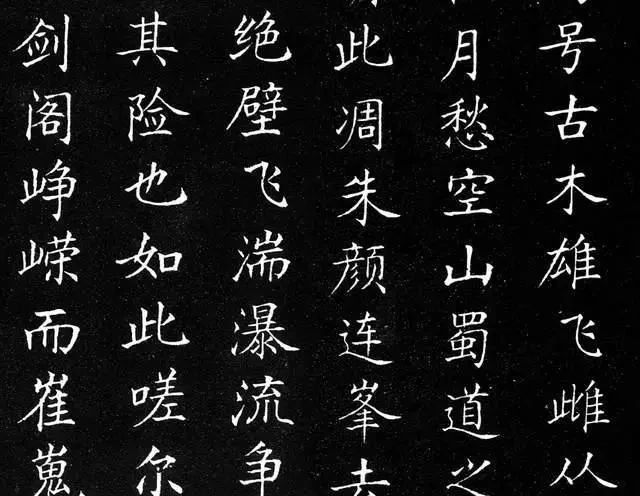 号古木雄飞雌从
月愁空山蜀道之
此凋朱颜连峯去
绝壁飞湍瀑流争
其险也如此嗟尔
剑阁峥嵘而崔嵬